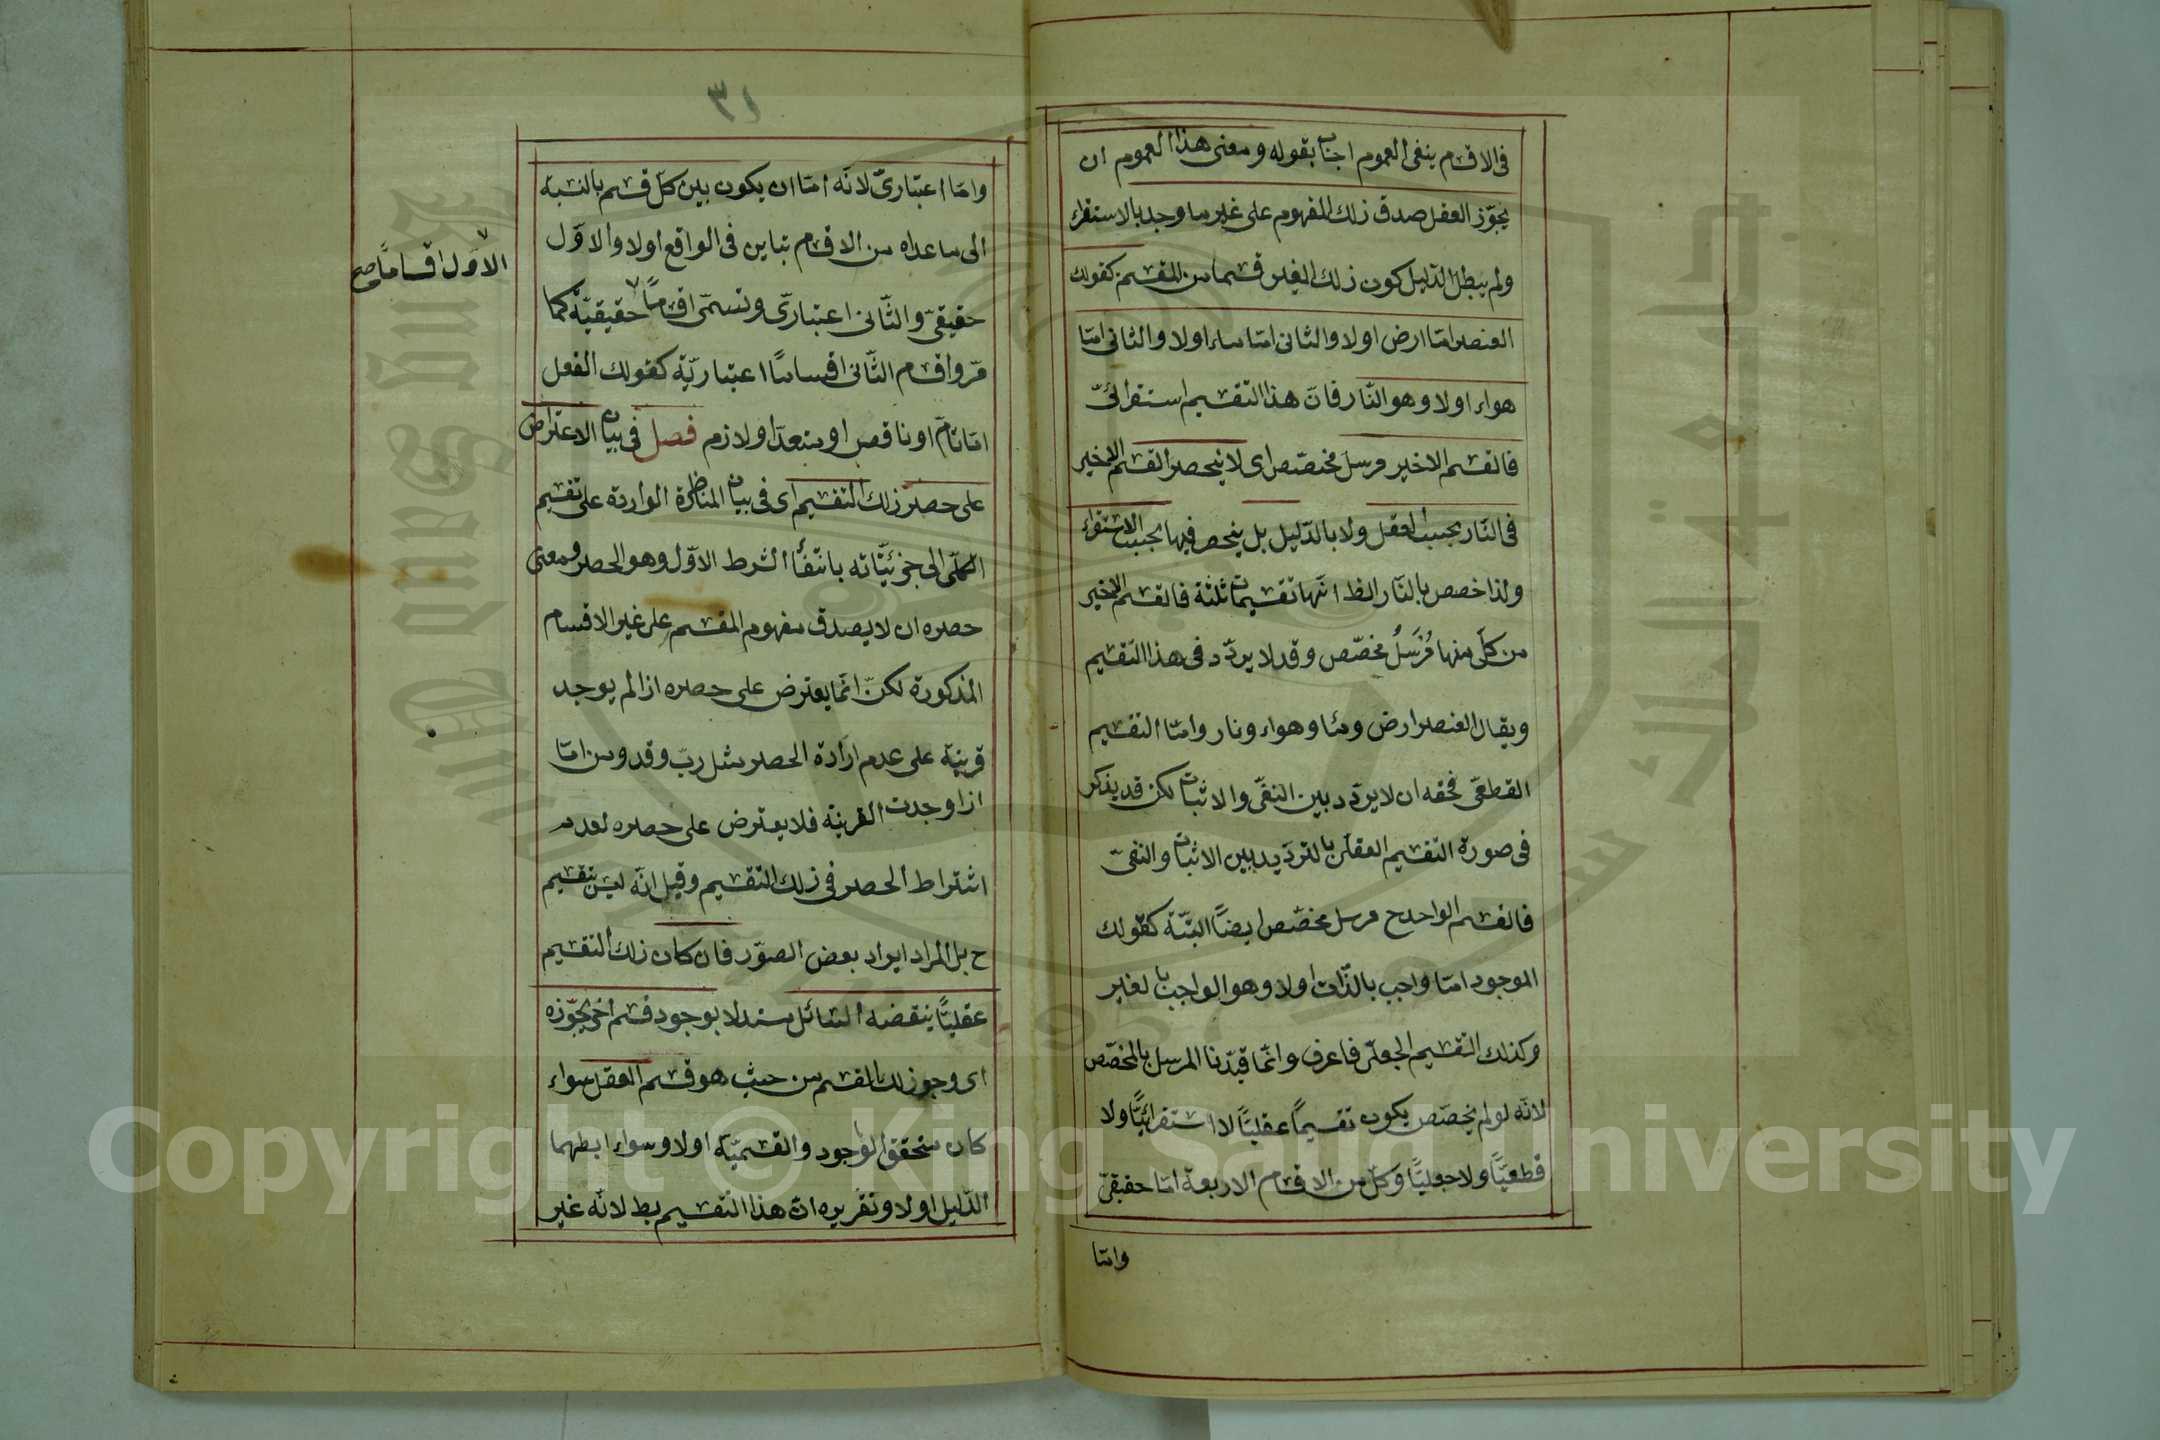 فى الاقسام ينفى العموم اجاب بقوله ومعنى هذا العموم ان
يجوّز العقل صدق ذلك المفهوم على غير ما وجد بالاستقراء
ولم يبطل الدّليل كون ذلك الغير قسما من المقسم كقولك
العنصر امّا ارض اولا والثانى امّا ماء اولا والثانى امّا
هواء اولا وهو النّار فانّ هذا التقسيم استقرائىّ
فالقسم الاخير مرسل مخصّص اى لا ينحصر القسم الاخير
فى النّار بحسب العقل ولا بالدّليل بل ينحصر فيها بحسب الاستقراء
ولذا خصص بالنّار الظ انّها تقسيمات ثلثة فالقسم الاخير
من كلّ منها مُرْسَلٌ مخصّص وقد لا يردّد فى هذا التّقسيم
ويقال العنصر ارض وماء وهواء ونار وامّا التقسيم
القطعىّ فحقه ان لا يردّد بين النفى والاثبات لكن قد يذكر
فى صورة التقسيم العقلىّ بالترديد بين الاثبات والنفىّ
فالقسم الواحد ح مرسل مخصّص ايضًا البتّة كقولك
الموجود امّا واجب بالذّات اولا وهو الواجب بالغير
وكذلك التّقسيم الجعلىّ فاعرف وانّما قيّدنا المرسل بالمخصّص
لانّه لو لم يخصّص يكون تقسيمًا عقليًّا لا استقرائيًّا ولا
قطعيًّا ولا جعليًّا وكلّ من الاقسام الاربعة امّا حقيقىّ
وامّا
٣١
وامّا اعتبارىّ لانّه امّا ان يكون بين كلّ قسم بالنسبة
الى ما عداه من الاقسام تباين فى الواقع اولا والاوّل
حقيقىّ والثّانى اعتبارىّ وتسمّى اقسامًا حقيقيّة كما
الاوّل اقسامًا صح
مرّ واقسام الثّانى اقسامًا اعتباريّة كقولك الفعل
امّا تامّ او ناقص او متعدّ او لازم فصل فى بيان الاعتراض
على حصر ذلك التقسيم اى فى بيان المناظرة الواردة على تقسيم
الكلّى الى جزئيّاته بانتفاء الشرط الاوّل وهو الحصر ومعنى
حصره ان لا يصدق مفهوم المقسم على غير الاقسام
المذكورة لكنّ انّما يعترض على حصره اذا لم يوجد
قرينة على عدم ارادة الحصر مثل ربّ وقد ومن امّا
اذا وجدت القرينة فلا يعترض على حصره لعدم
اشتراط الحصر فى ذلك التقسيم وقيل انّه ليس بتقسيم
ح بل المراد ايراد بعض الصوّر فان كان ذلك التقسيم
عقليًّا ينقضه السّائل مستدلا بوجود قسم اخر يجوّزه
العقل سواء
كان متحقق الوجود والقسميّة اولا وسواء ابطهما
الدّليل اولا وتقريره انّ هذا التّقسيم بط لانّه غير
Copyright © King Saud University